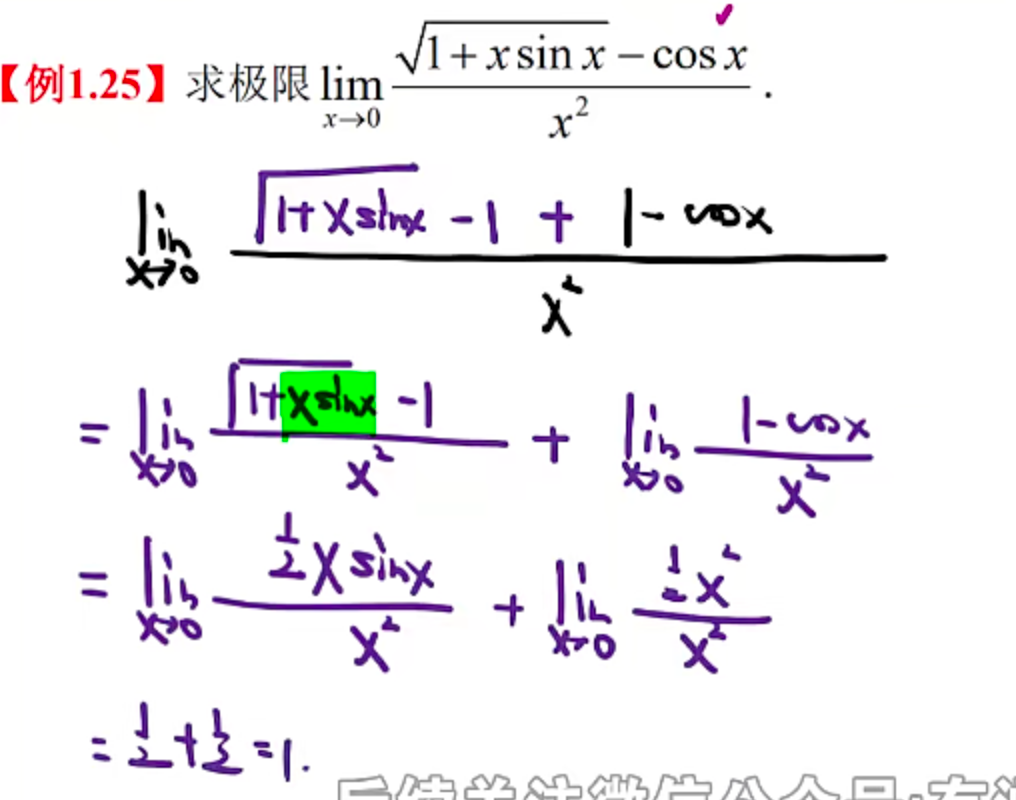 【例1.25】求极限 lim x→0 (√(1+x sin x) − cos x) / x² .
lim x→0 (√(1+x sinx) − 1 + 1 − cosx) / x²
= lim x→0 (√(1+x sinx) − 1) / x² + lim x→0 (1 − cosx) / x²
= lim x→0 (½ x sinx) / x² + lim x→0 (½ x²) / x²
= ½ + ½ = 1.